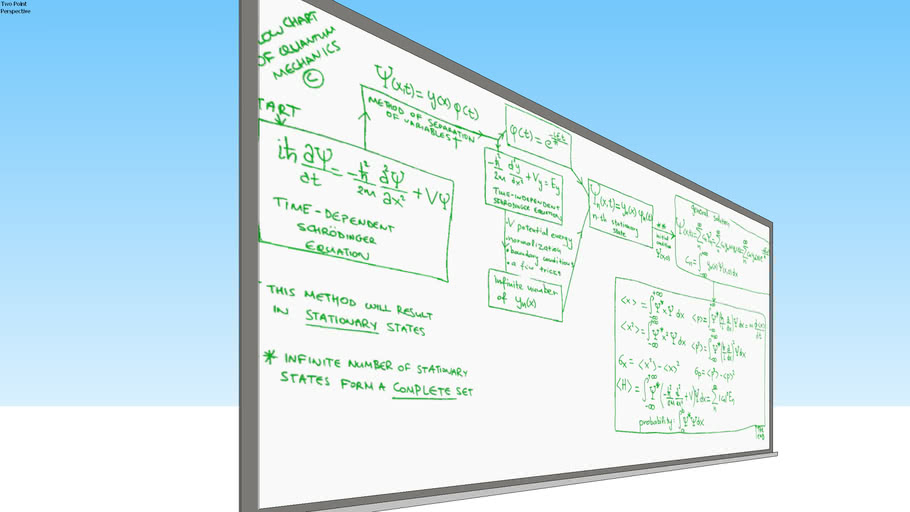 Two Point
Perspective
LOW CHART
OF QUANTUM
MECHANICS
©
TART
iħ ∂Ψ/∂t = -ħ²/2m ∂²Ψ/∂x² + VΨ
TIME-DEPENDENT
SCHRÖDINGER
EQUATION
Ψ(x,t) = y(x) φ(t)
METHOD OF SEPARATION
OF VARIABLES †
φ(t) = e
-ħ²/2m d²y/dx² + Vy = Ey
TIME-INDEPENDENT
SCHRÖDINGER EQUATION
V potential energy
• normalization
• boundary conditions
• a few tricks
infinite number
of yₙ(x)
Ψₙ(x,t) = yₙ(x) φₙ(t)
n-th stationary
state
**
general solution
<x> = ∫ Ψ* x Ψ dx
<x²> = ∫ Ψ* x² Ψ dx
σx = <x²> - <x>²
σp = <p²> - <p>²
<H> = ∫ Ψ* (-ħ²/2m d²/dx² + V) Ψ dx = Σ |cₙ|² Eₙ
probability: ∫ Ψ* Ψ dx
THE
END
- THIS METHOD WILL RESULT
IN STATIONARY STATES
* INFINITE NUMBER OF STATIONARY
STATES FORM A COMPLETE SET